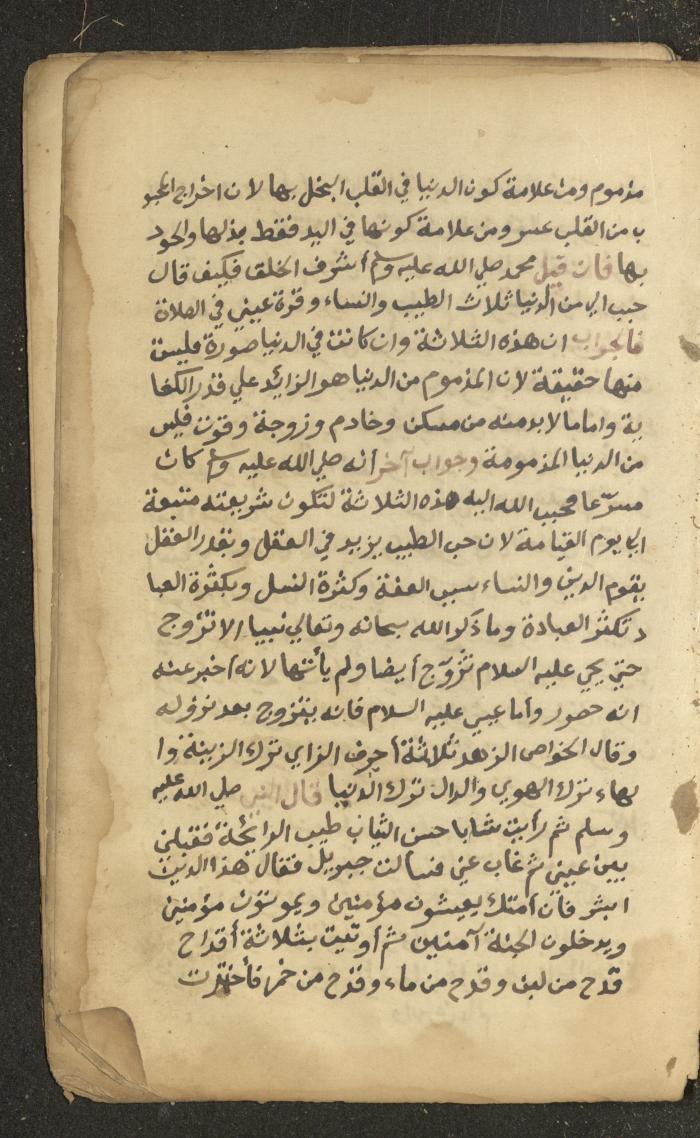 مذموم ومن علامة كون الدنيا في القلب البخل بها لان اخراج المحبو
ب من القلب عسر ومن علامة كونها في اليد فقط بذلها والجود
بها فان قيل محمد صلي الله عليه وسلم أشرف الخلق فكيف قال
حبب الي من الدنيا ثلاث الطيب والنساء وقرة عيني في الصلاة
فالجواب ان هذه الثلاثة وان كانت في الدنيا صورة فليست
منها حقيقة لان المذموم من الدنيا هو الزائد علي قدر الكفا
ية واما ما لابد منه من مسكن وخادم وزوجة وقوت فليس
من الدنيا المذمومة وجواب آخر أنه صلي الله عليه وسلم كان
مشرّعا فحبب الله اليه هذه الثلاثة لتكون شريعته متبعة
الي يوم القيامة لان حب الطيب يزيد في العقل وبقدر العقل
يقوم الدين والنساء سبب العفة وكثرة النسل وبكثرة العبا
د تكثر العبادة وما ذكر الله سبحانه وتعالي نبيا الا تزوج
حتي يحي عليه السلام تزوّج أيضا ولم يأتها لانه أخبر عنه
انه حصور وأما عيسي عليه السلام فانه يتزوج بعد نزوله
وقال الخواص الزهد ثلاثة أحرف الزاي ترك الزينة وا
لهاء ترك الهوي والدال ترك الدنيا قال النبي صلي الله عليه
وسلم ثم رأيت شابا حسن الثياب طيب الرايحة فقبلني
بين عيني ثم غاب عني فسألت جبريل فقال هذا الدين
ابشر فان أمتك يعيشون مؤمنين ويموتون مؤمنين
ويدخلون الجنة آمنين ثم أوتيت بثلاثة أقداح
قدح من لبن وقدح من ماء وقدح من خمر فأخترت